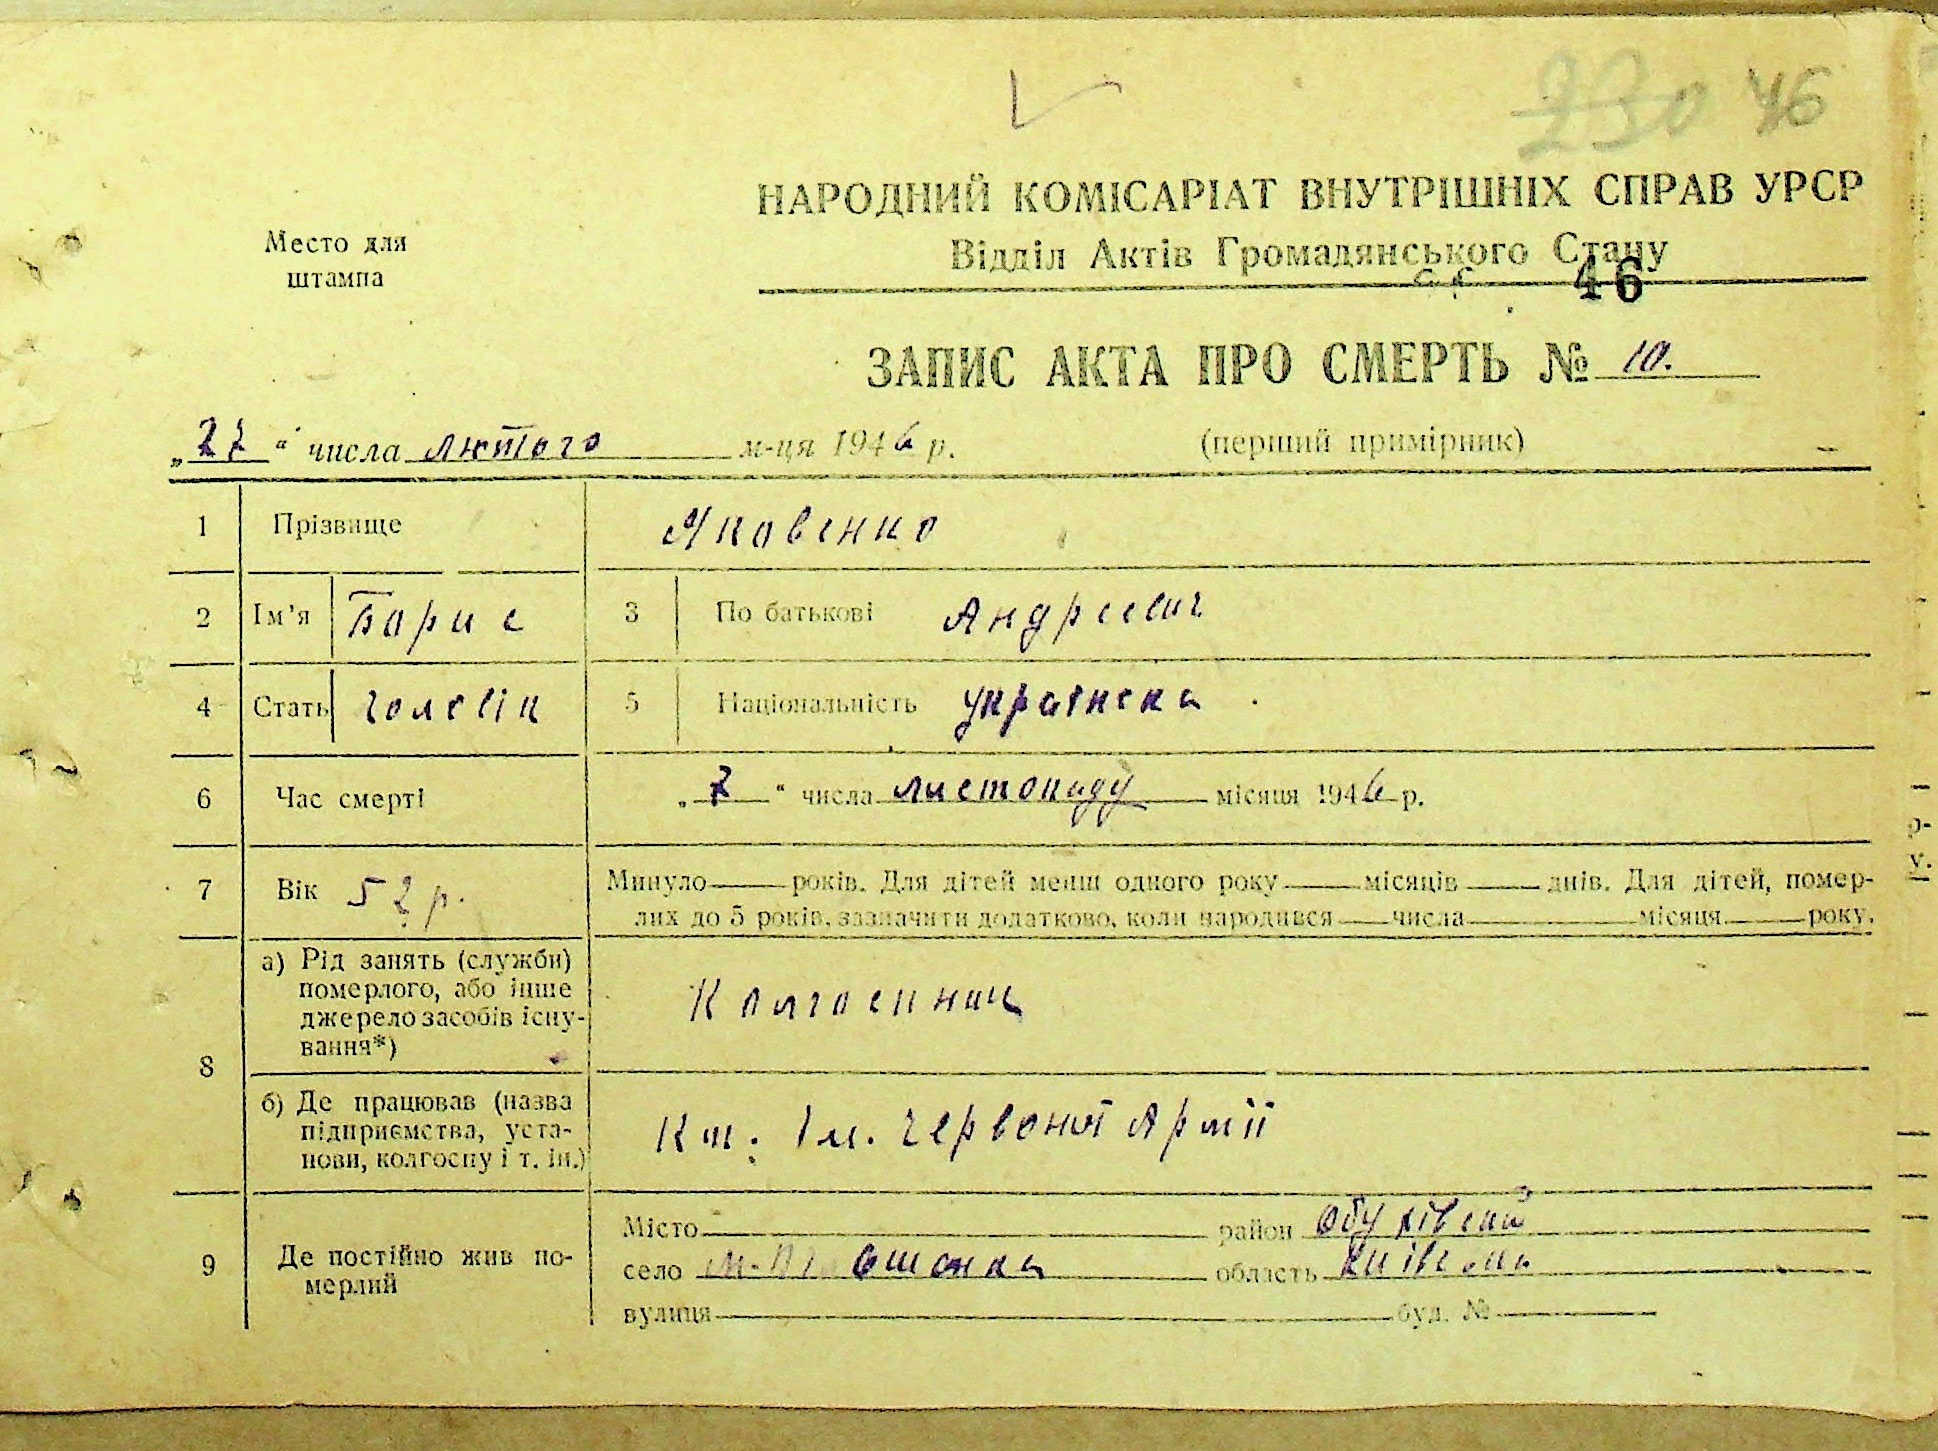 230 46
Место для
штампа
НАРОДНИЙ КОМІСАРІАТ ВНУТРІШНІХ СПРАВ УРСР
Відділ Актів Громадянського Стану
46
ЗАПИС АКТА ПРО СМЕРТЬ № 10.
„27“ числа лютого м-ця 1946 р. (перший примірник)
1 Прізвище Яковенко
2 Ім’я Борис 3 По батькові Андреевич
4 Стать чоловік 5 Національність українська
6 Час смерті „7“ числа листопаду місяця 1946 р.
7 Вік 52 р. Минуло — років. Для дітей менш одного року — місяців — днів. Для дітей, помер-
лих до 5 років, зазначити додатково, коли народився — числа — місяця — року.
8 а) Рід занять (служби)
померлого, або інше
джерело засобів існу-
вання*)
Колгоспник
б) Де працював (назва
підприємства, уста-
нови, колгоспу і т. ін.)
Ім. Червоної Армії
9 Де постійно жив по-
мерлий
Місто район Обухівский
село область Київська
вулиця буд. №